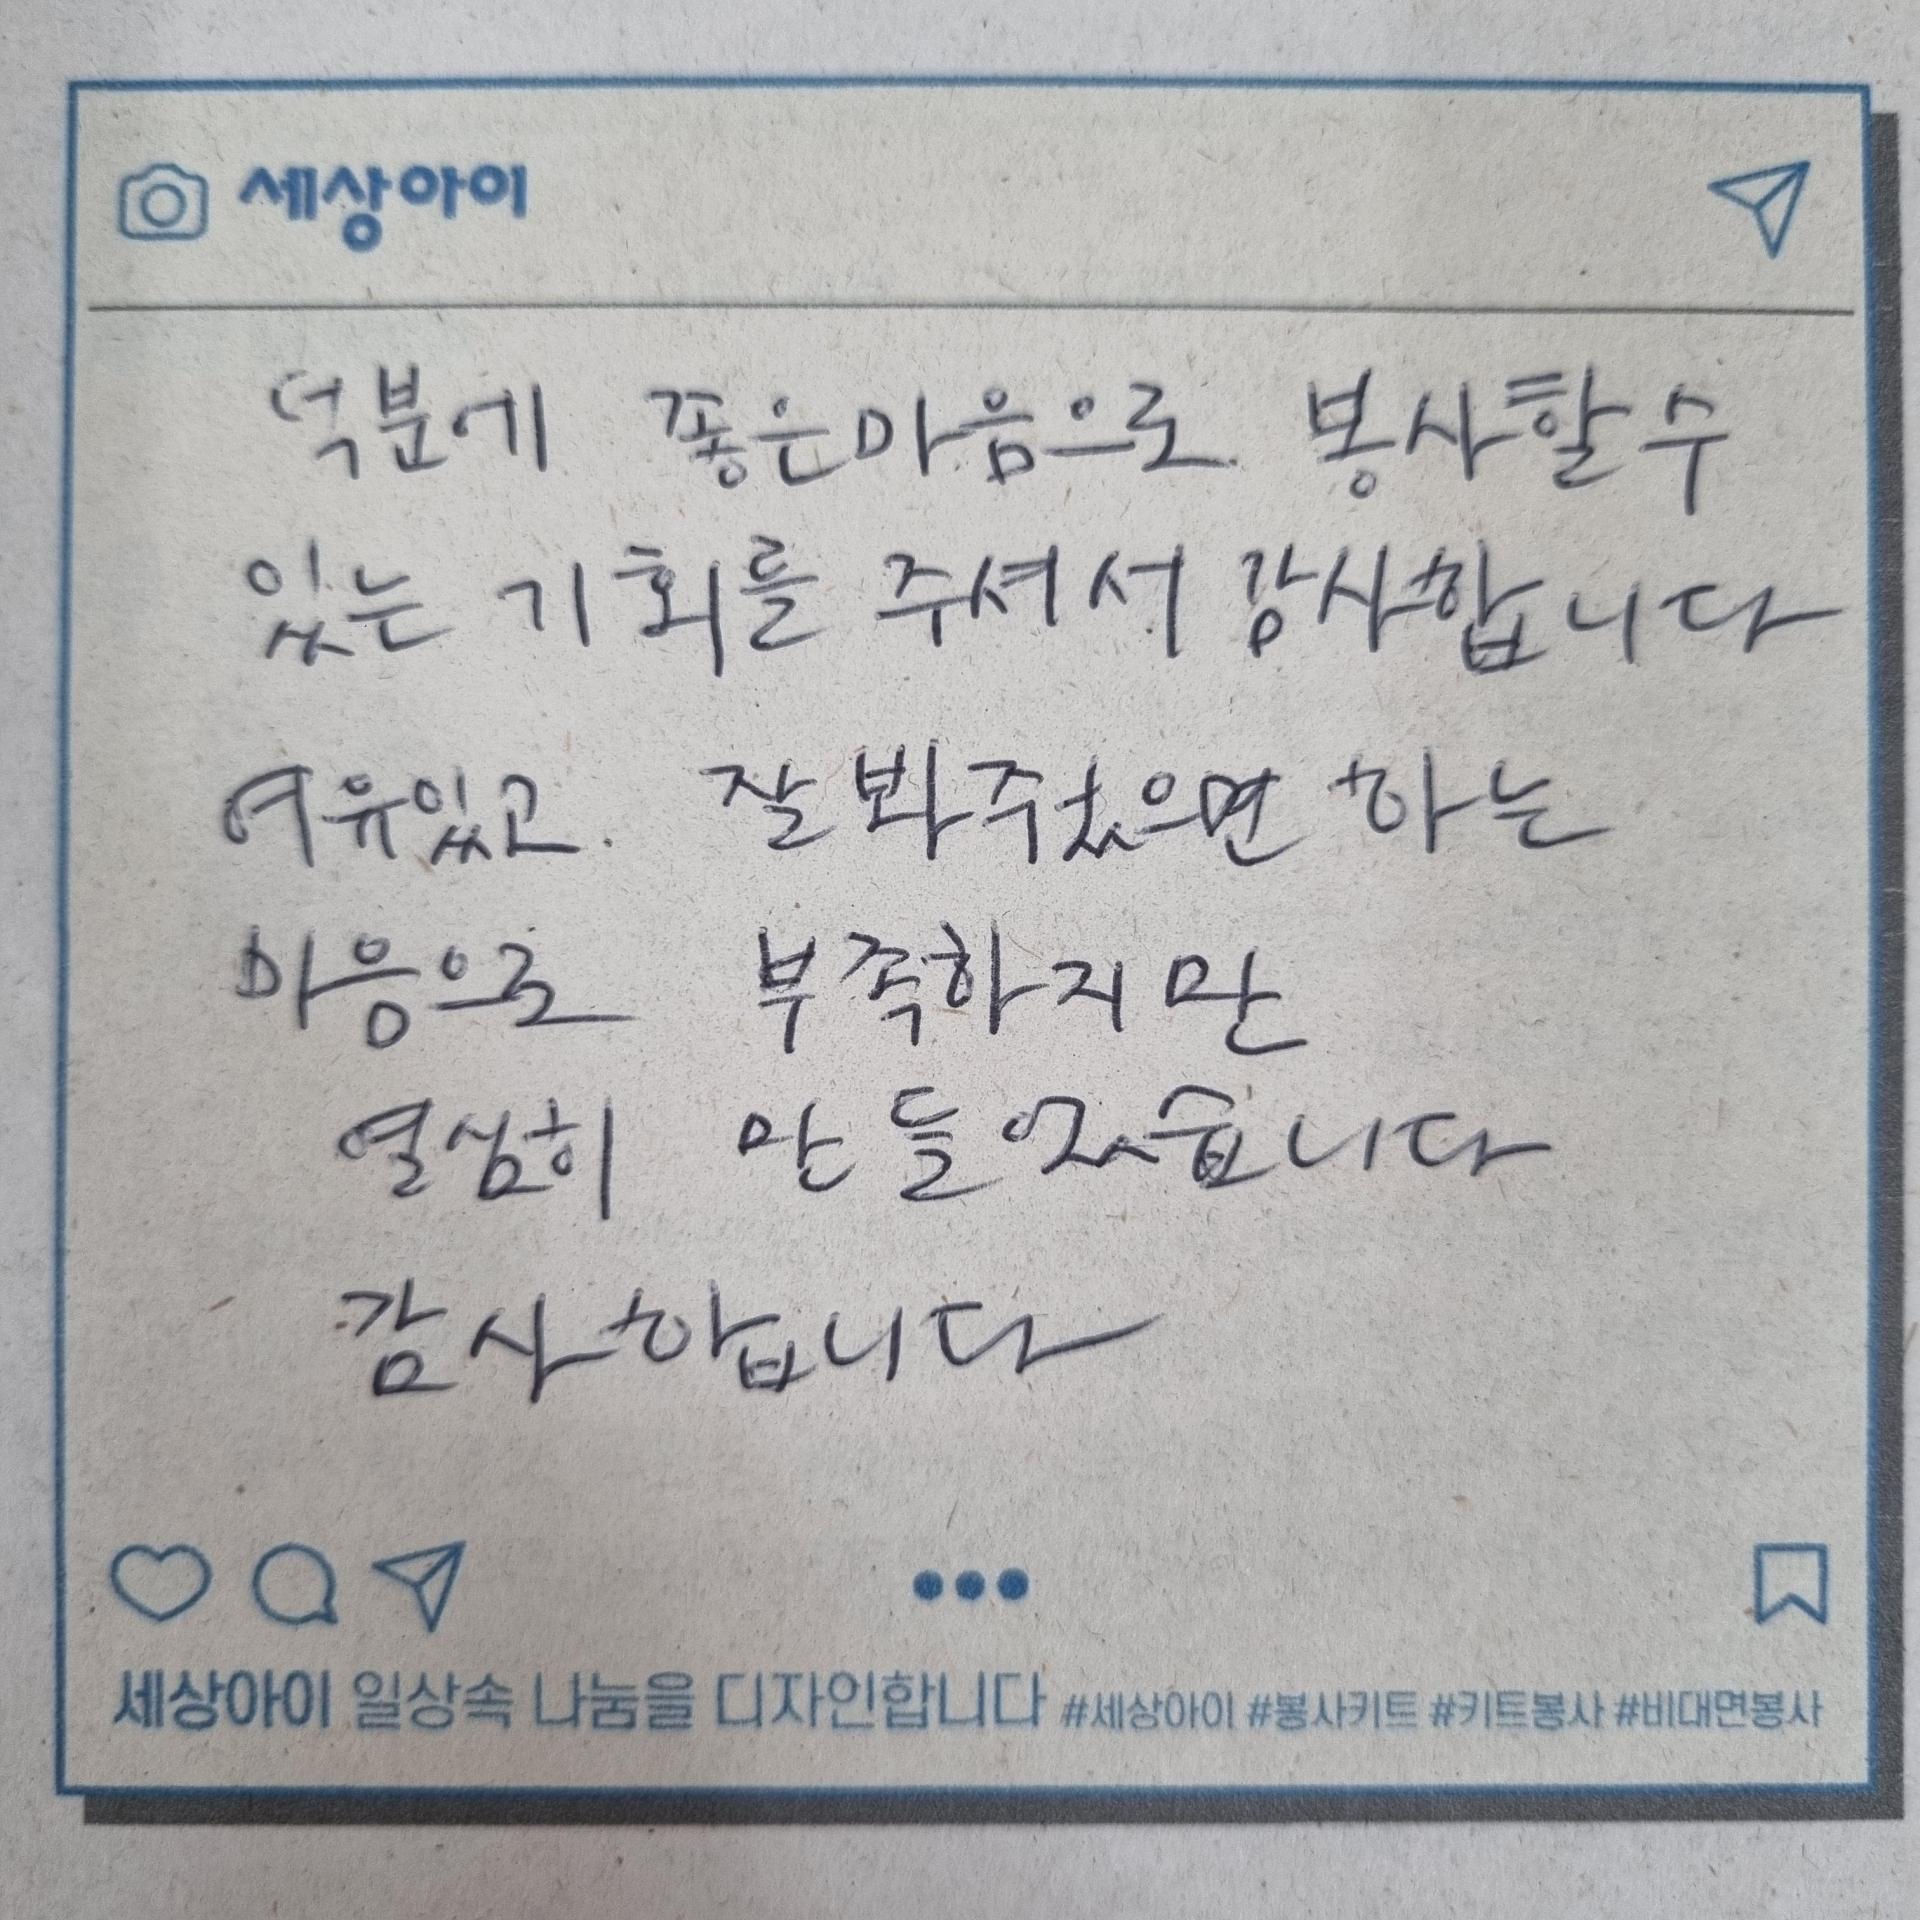 세상아이
덕분에 좋은마음으로. 봉사할수
있는 기회를 주셔서 감사합니다
여유있고. 잘 봐주었으면 하는
마음으로 부족하지만
열심히 만들었습니다
감사합니다
세상아이 일상속 나눔을 디자인합니다 #세상아이 #봉사키트 #키트봉사 #비대면봉사